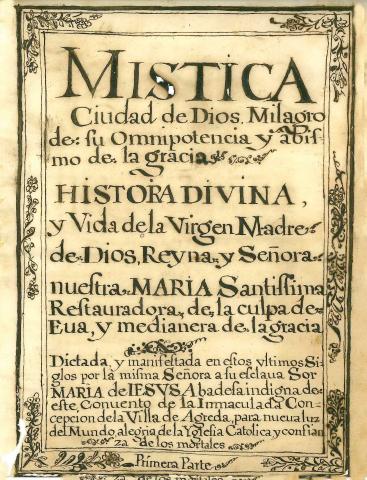 MISTICA
Ciudad de Dios, Milagro
de su Omnipotencia y abis-
mo de la gracia
HISTORA DIVINA,
y Vida de la Virgen Madre
de Dios, Reyna y Señora
nuestra MARIA Santissima
Restauradora de la culpa de
Eua, y medianera de la gracia
Dictada, y manifestada en estos vltimos Si-
glos por la misma Señora a su esclaua Sor
MARIA de IESVS Abadesa indigna de
este Conuento de la Inmaculada Con-
cepcion de la Villa de Agreda, para nueua luz
del Mundo alegria de la Yglesia Catolica y confian
za de los mortales
Primera Parte
za de los mortales